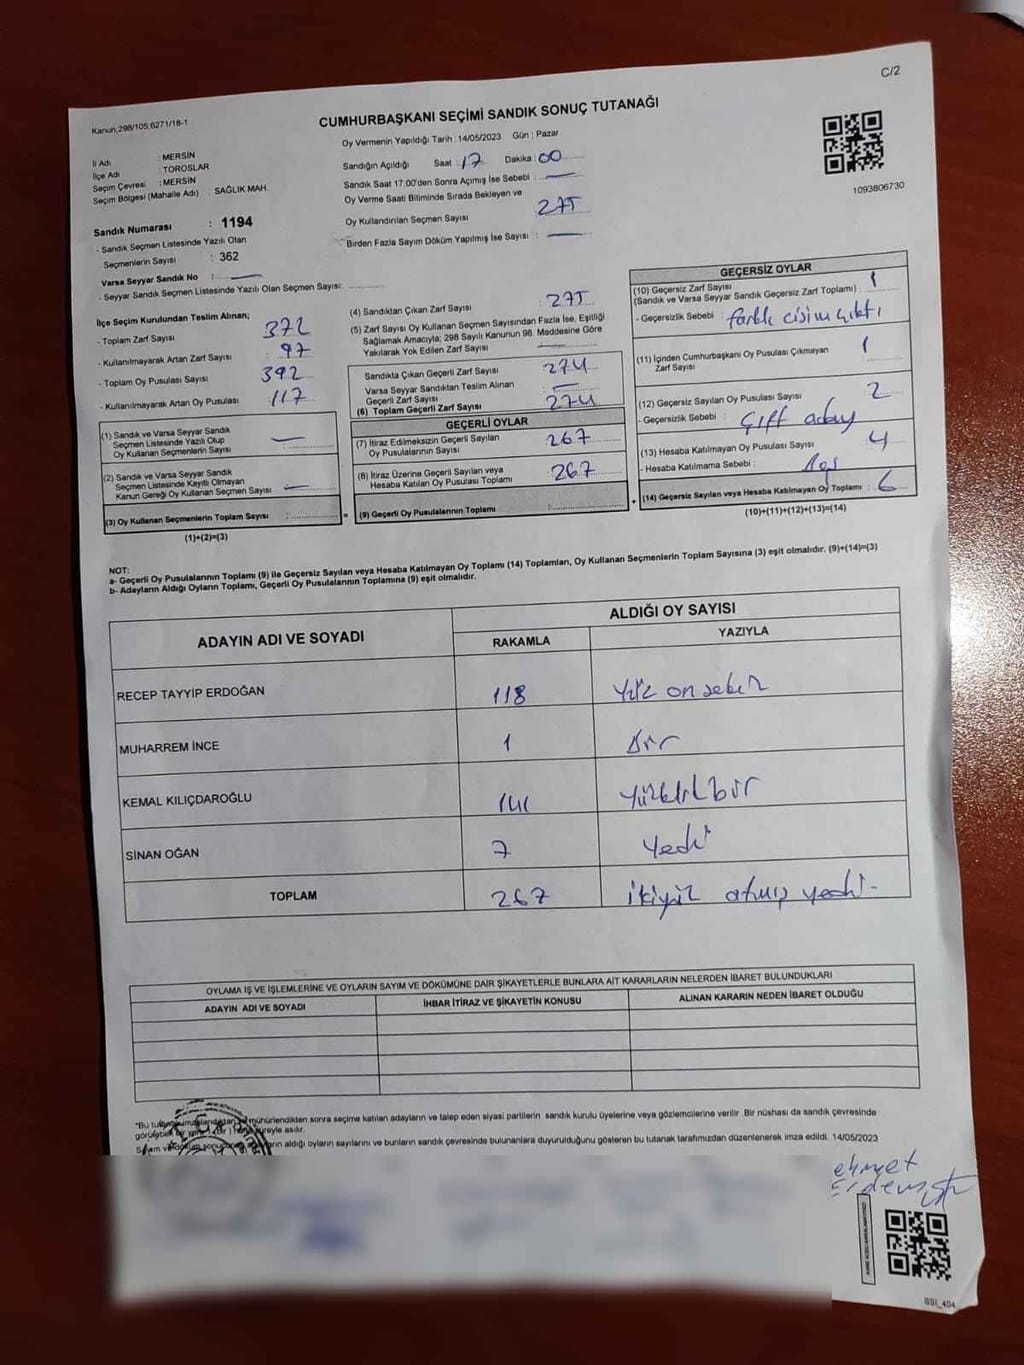 C/2
Kanun,298/105,6271/18-1
CUMHURBAŞKANI SEÇİMİ SANDIK SONUÇ TUTANAĞI
Oy Vermenin Yapıldığı Tarih : 14/05/2023 Gün : Pazar
İl Adı : MERSİN
İlçe Adı : TOROSLAR
Seçim Çevresi : MERSİN
Seçim Bölgesi (Mahalle Adı) : SAĞLIK MAH.
Sandığın Açıldığı Saat : 17 Dakika : 00
Sandık Saat 17:00'den Sonra Açımış İse Sebebi :
Oy Verme Saati Bitiminde Sırada Bekleyen ve
Oy Kullandırılan Seçmen Sayısı 275
Birden Fazla Sayım Döküm Yapılmış İse Sayısı :
1093806730
Sandık Numarası : 1194
- Sandık Seçmen Listesinde Yazılı Olan
Seçmenlerin Sayısı : 362
Varsa Seyyar Sandık No :
- Seyyar Sandık Seçmen Listesinde Yazılı Olan Seçmen Sayısı:
İlçe Seçim Kurulundan Teslim Alınan;
- Toplam Zarf Sayısı : 372
- Kullanılmayarak Artan Zarf Sayısı : 97
- Toplam Oy Pusulası Sayısı : 392
- Kullanılmayarak Artan Oy Pusulası : 117
(1) Sandık ve Varsa Seyyar Sandık
Seçmen Listesinde Yazılı Olup
Oy Kullanan Seçmenlerin Sayısı :
(2) Sandık ve Varsa Seyyar Sandık
Seçmen Listesinde Kayıtlı Olmayan
Kanun Gereği Oy Kullanan Seçmen Sayısı :
(3) Oy Kullanan Seçmenlerin Toplam Sayısı :
(1)+(2)=(3)
(4) Sandıktan Çıkan Zarf Sayısı : 275
(5) Zarf Sayısı Oy Kullanan Seçmen Sayısından Fazla İse, Eşitliği
Sağlamak Amacıyla; 298 Sayılı Kanunun 98. Maddesine Göre
Yakılarak Yok Edilen Zarf Sayısı :
Sandıkta Çıkan Geçerli Zarf Sayısı : 274
Varsa Seyyar Sandıktan Teslim Alınan
Geçerli Zarf Sayısı :
(6) Toplam Geçerli Zarf Sayısı : 274
GEÇERLİ OYLAR
(7) İtiraz Edilmeksizin Geçerli Sayılan
Oy Pusulasının Sayısı : 267
(8) İtiraz Üzerine Geçerli Sayılan veya
Hesaba Katılan Oy Pusulası Toplamı : 267
(9) Geçerli Oy Pusulalarının Toplamı :
GEÇERSİZ OYLAR
(10) Geçersiz Zarf Sayısı
(Sandık ve Varsa Seyyar Sandık Geçersiz Zarf Toplamı) : 1
- Geçersizlik Sebebi : farklı cisim çıktı
(11) İçinden Cumhurbaşkanı Oy Pusulası Çıkmayan
Zarf Sayısı : 1
(12) Geçersiz Sayılan Oy Pusulası Sayısı : 2
- Geçersizlik Sebebi : Çift aday
(13) Hesaba Katılmayan Oy Pusulası Sayısı : 4
- Hesaba Katılmama Sebebi :
(14) Geçersiz Sayılan veya Hesaba Katılmayan Oy Toplamı : 6
(10)+(11)+(12)+(13)=(14)
NOT:
a- Geçerli Oy Pusulalarının Toplamı (9) ile Geçersiz Sayılan veya Hesaba Katılmayan Oy Toplamı (14) Toplamları, Oy Kullanan Seçmenlerin Toplam Sayısına (3) eşit olmalıdır. (9)+(14)=(3)
b- Adayların Aldığı Oyların Toplamı, Geçerli Oy Pusulalarının Toplamına (9) eşit olmalıdır.
ADAYIN ADI VE SOYADI
ALDIĞI OY SAYISI
RAKAMLA YAZIYLA
RECEP TAYYİP ERDOĞAN 118 Yüz on sekiz
MUHARREM İNCE 1 Bir
KEMAL KILIÇDAROĞLU 141 Yüzkırkbir
SİNAN OĞAN 7 Yedi
TOPLAM 267 İkiyüz atmış yedi-
OYLAMA İŞ VE İŞLEMLERİNE VE OYLARIN SAYIM VE DÖKÜMÜNE DAİR ŞİKAYETLERLE BUNLARA AİT KARARLARIN NELERDEN İBARET BULUNDUKLARI
ADAYIN ADI VE SOYADI
İHBAR İTİRAZ VE ŞİKAYETİN KONUSU
ALINAN KARARIN NEDEN İBARET OLDUĞU
mühürlendikten sonra seçime katılan adayların ve talep eden siyasi partilerin sandık kurulu üyelerine veya gözlemcilerine verilir. Bir nüshası da sandık çevresinde
süreyle asılır.
aldığı oyların sayılarını ve bunların sandık çevresinde bulunanlara duyurulduğunu gösteren bu tutanak tarafımızdan düzenlenerek imza edildi. 14/05/2023
SSI_404